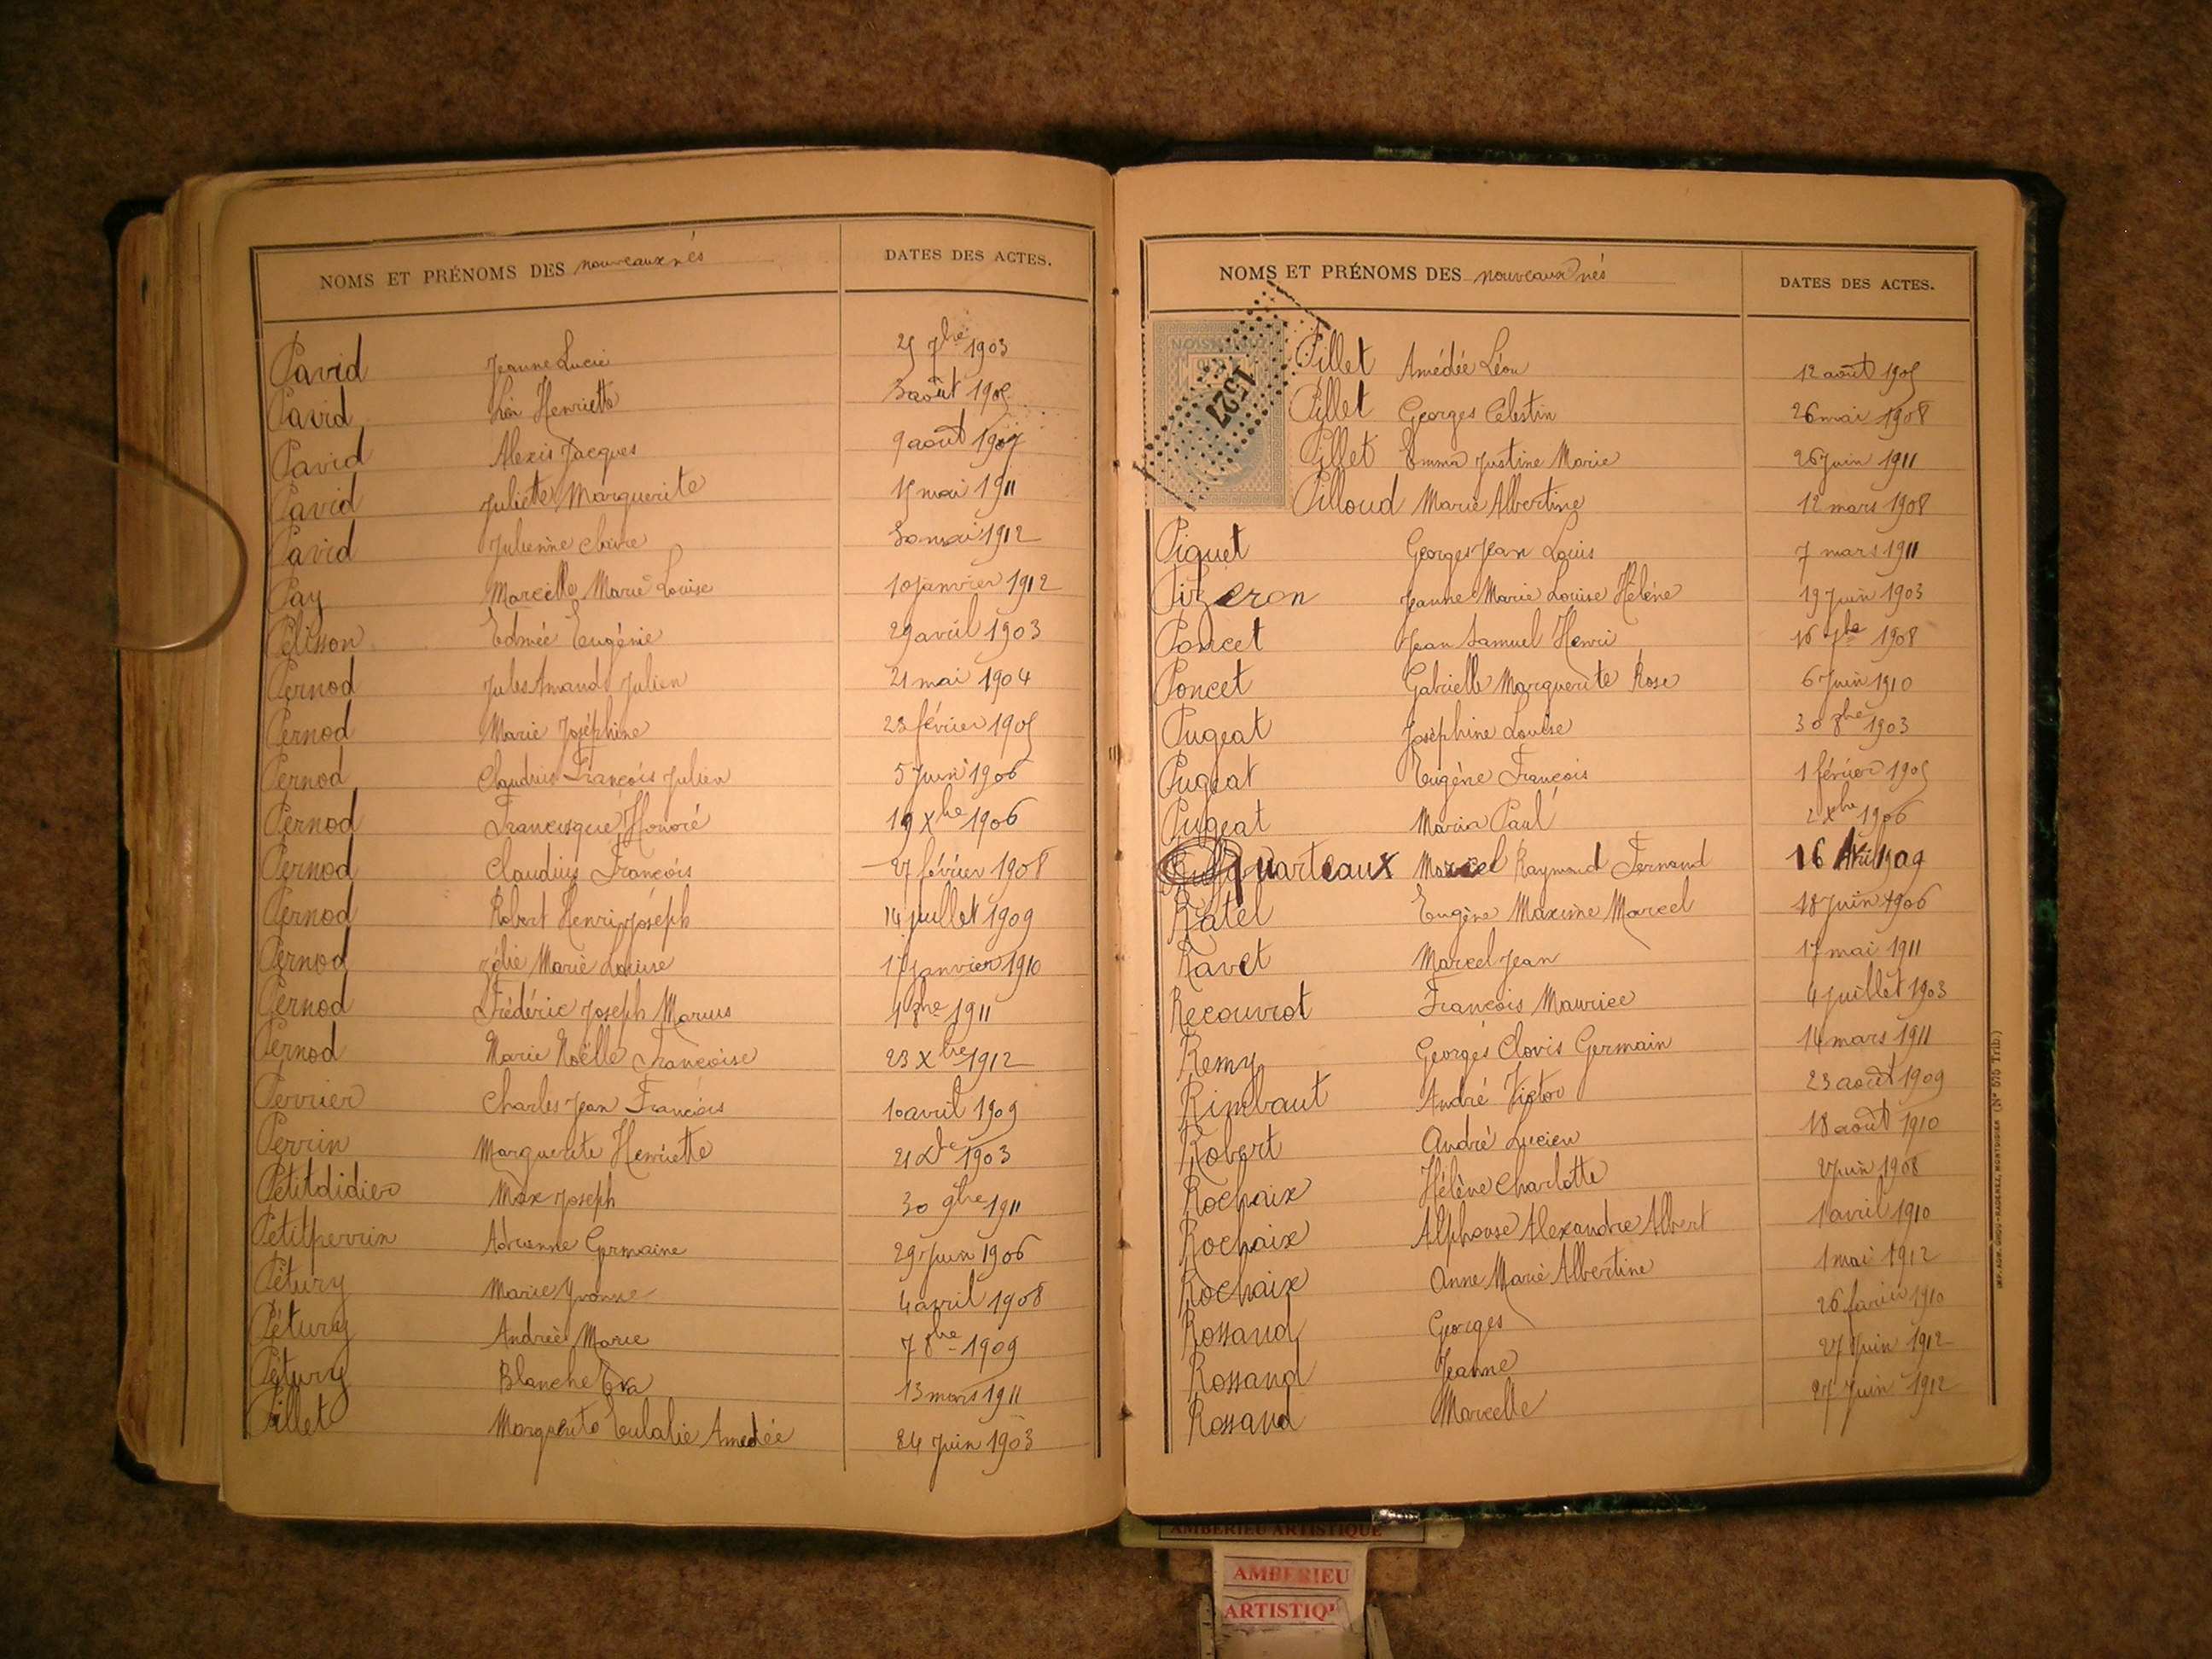 NOMS ET PRÉNOMS DES nouveaux nés DATES DES ACTES.
Pavid Jeanne Lucie 25 7bre 1903
Pavid Henriette 3 août 1905
Pavid Alexis Jacques 9 août 1907
Pavid Juliette Marguerite 15 mai 1911
Pavid Julienne Claire 30 mai 1912
Pay Marcelle Marie Louise 10 janvier 1912
Pélisson Edmée Eugénie 29 avril 1903
Pernod Jules Amand Julien 21 mai 1904
Pernod Marie Joséphine 23 février 1905
Pernod Claudius François Julien 5 Juin 1906
Pernod Francisque Honoré 19 Xbre 1906
Pernod Claudius François 27 février 1908
Pernod Robert Henri Joseph 14 juillet 1909
Pernod Zélie Marie Louise 17 janvier 1910
Pernod Frédéric Joseph Marius 1 8bre 1911
Pernod Marie Noëlle Françoise 23 Xbre 1912
Perrier Charles Jean François 10 avril 1909
Perrin Marguerite Henriette 21 1903
Petitdidier Max Joseph 30 9bre 1911
Petitperrin Adrienne Germaine 29 Juin 1906
Pétury Marie Yvonne 4 avril 1908
Pétury Andrée Marie 7 8bre 1909
Pétury Blanche Eva 13 mars 1911
Pillet Marguerite Eulalie Amedée 24 Juin 1903
NOMS ET PRÉNOMS DES nouveaux nés DATES DES ACTES.
1527
Pillet Amédée Léon 12 août 1905
Pillet Georges Célestin 26 mai 1908
Pillet Emma Justine Marie 26 Juin 1911
Pilloud Marie Albertine 12 mars 1908
Piquet Georges Jean Louis 7 mars 1911
Pizeron Jeanne Marie Louise Hélène 19 Juin 1903
Poncet Jean Samuel Henri 16 7bre 1908
Poncet Gabrielle Marguerite Rose 6 Juin 1910
Pugeat Joséphine Louise 30 8bre 1903
Pugeat Eugène François 1 février 1905
Pugeat Maria Paul 2 Xbre 1906
Quarteaux Marcel Raymond Fernand 16 Avril 1909
Ratel Eugène Maxime Marcel 18 Juin 1906
Ravet Marcel Jean 17 mai 1911
Recouvrot François Maurice 4 Juillet 1903
Remy Georges Clovis Germain 14 mars 1911
Rimbaut André Victor 23 août 1909
Robert André Lucien 18 août 1910
Rochaix Hélène Charlotte 2 Juin 1908
Rochaix Alphonse Alexandre Albert 1 avril 1910
Rochaix Anne Marie Albertine 1 mai 1912
Rossand Georges 26 février 1910
Rossand Jeanne 27 Juin 1912
Rossand Marcelle 27 Juin 1912
AMBERIEU ARTISTIQUE
AMBERIEU
ARTISTIQ